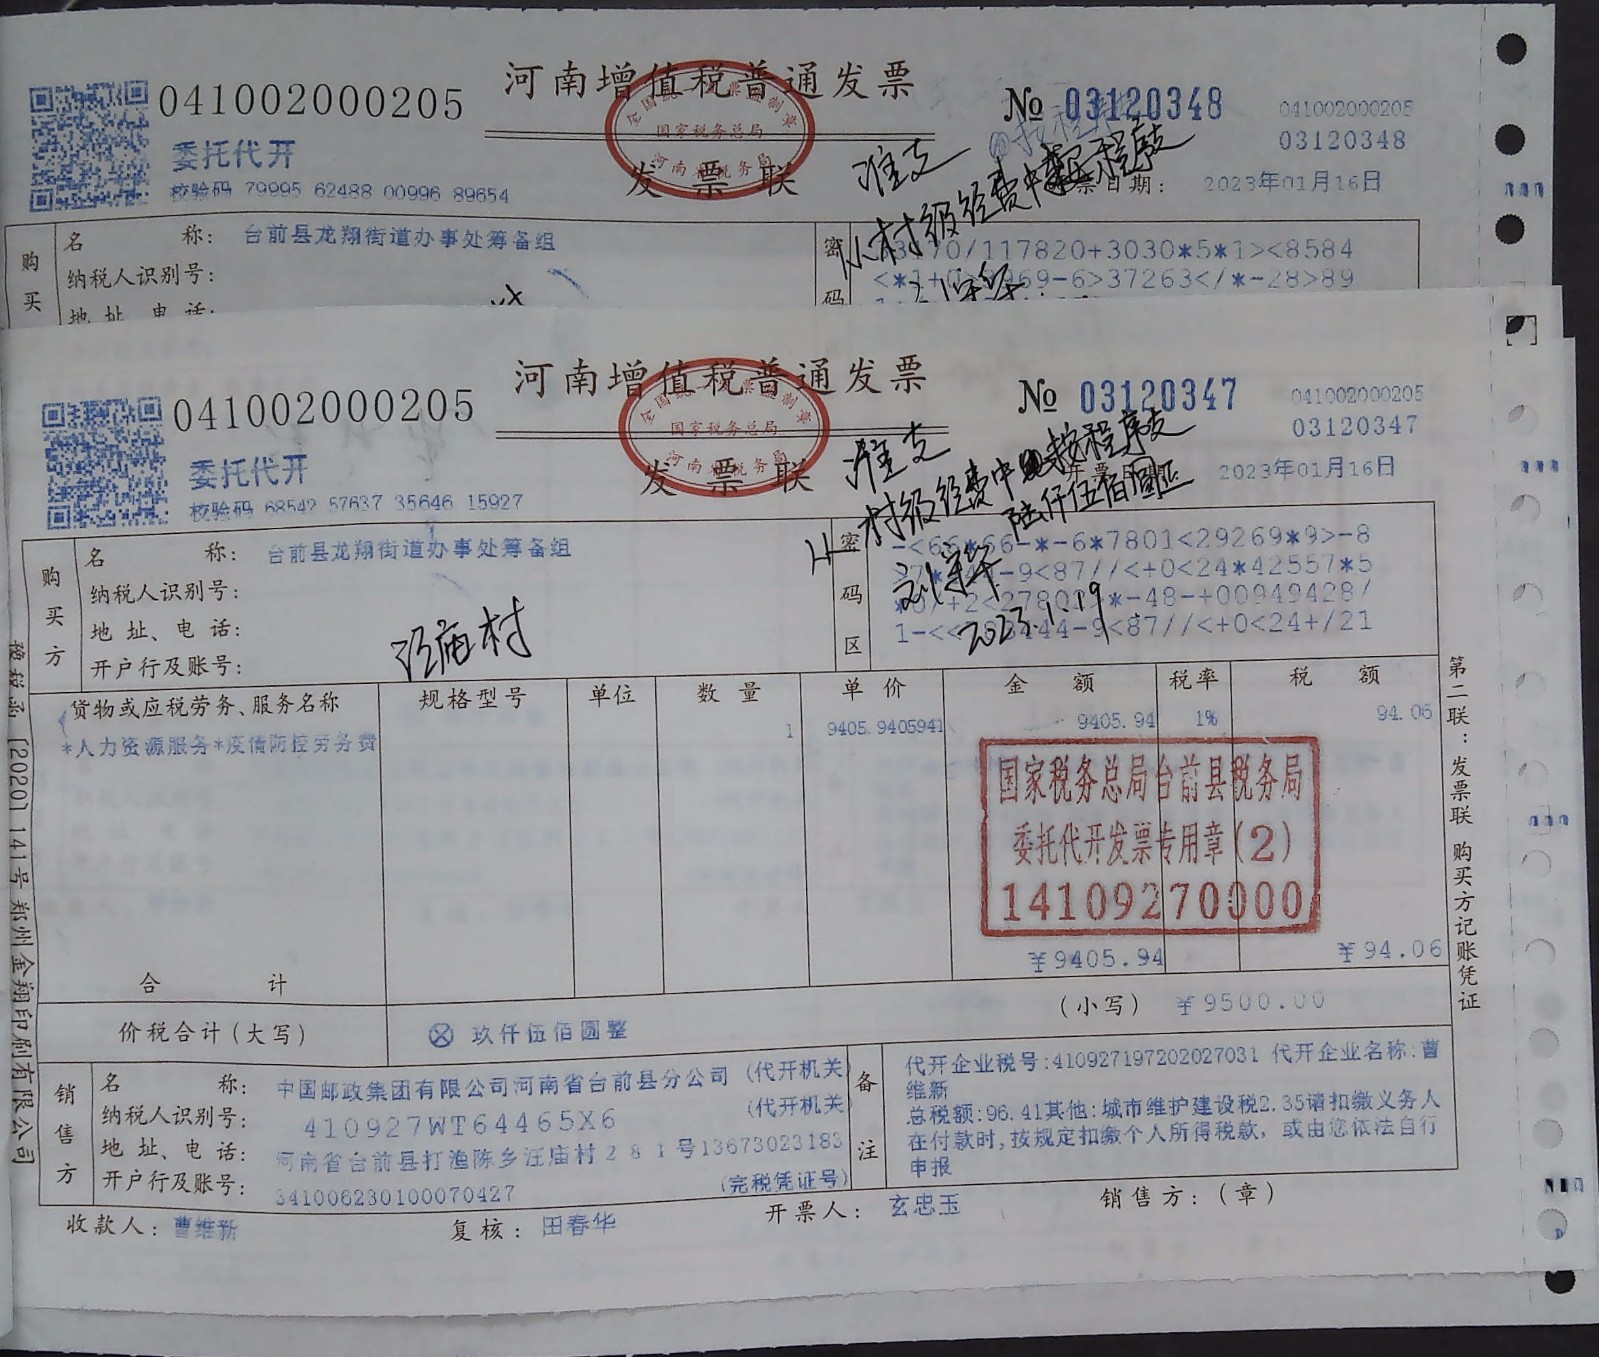 河南增值税普通发票
041002000205
№ 03120348
041002000205
03120348
委托代开
校验码 79995 62488 00996 89654
全国统一发票监制章
国家税务总局
河南省税务局
发票联
准支
票日期: 2023年01月16日
村级经费中按程序支
购买
名称: 台前县龙翔街道办事处筹备组
纳税人识别号:
地址、电话:
密码
/117820+3030*5*1><8584
969-6>37263</*-28>89
河南增值税普通发票
041002000205
№ 03120347
041002000205
03120347
委托代开
校验码 68542 57637 35646 15927
全国统一发票监制章
国家税务总局
河南省税务局
发票联
准支
开票日期: 2023年01月16日
从村级经费中按程序支
陆仟伍佰圆正
2023.1.19
购买方
名称: 台前县龙翔街道办事处筹备组
纳税人识别号:
地址、电话:
开户行及账号:
汪庙村
密码区
-<66*66-*-6*7801<29269*9>-8
-9<87//<+0<24*42557*5
*-48-+00949428/
44-9<87//<+0<24+/21
货物或应税劳务、服务名称 规格型号 单位 数量 单价 金额 税率 税额
*人力资源服务*疫情防控劳务费 1 9405.9405941 9405.94 1% 94.06
国家税务总局台前县税务局
委托代开发票专用章(2)
14109270000
合计 ¥9405.94 ¥94.06
价税合计(大写) ⊗ 玖仟伍佰圆整 (小写) ¥9500.00
销售方
名称: 中国邮政集团有限公司河南省台前县分公司 (代开机关
纳税人识别号: 410927WT64465X6 (代开机关
地址、电话: 河南省台前县打渔陈乡汪庙村281号13673023183
开户行及账号: 341006230100070427 (完税凭证号)
备注
代开企业税号:410927197202027031 代开企业名称:曹
维新
总税额:96.41其他:城市维护建设税2.35请扣缴义务人
在付款时,按规定扣缴个人所得税款, 或由您依法自行
申报
收款人: 曹维新 复核: 田春华 开票人: 玄忠玉 销售方:(章)
第二联:发票联 购买方记账凭证
豫税函[2020]141号 郑州金翔印刷有限公司